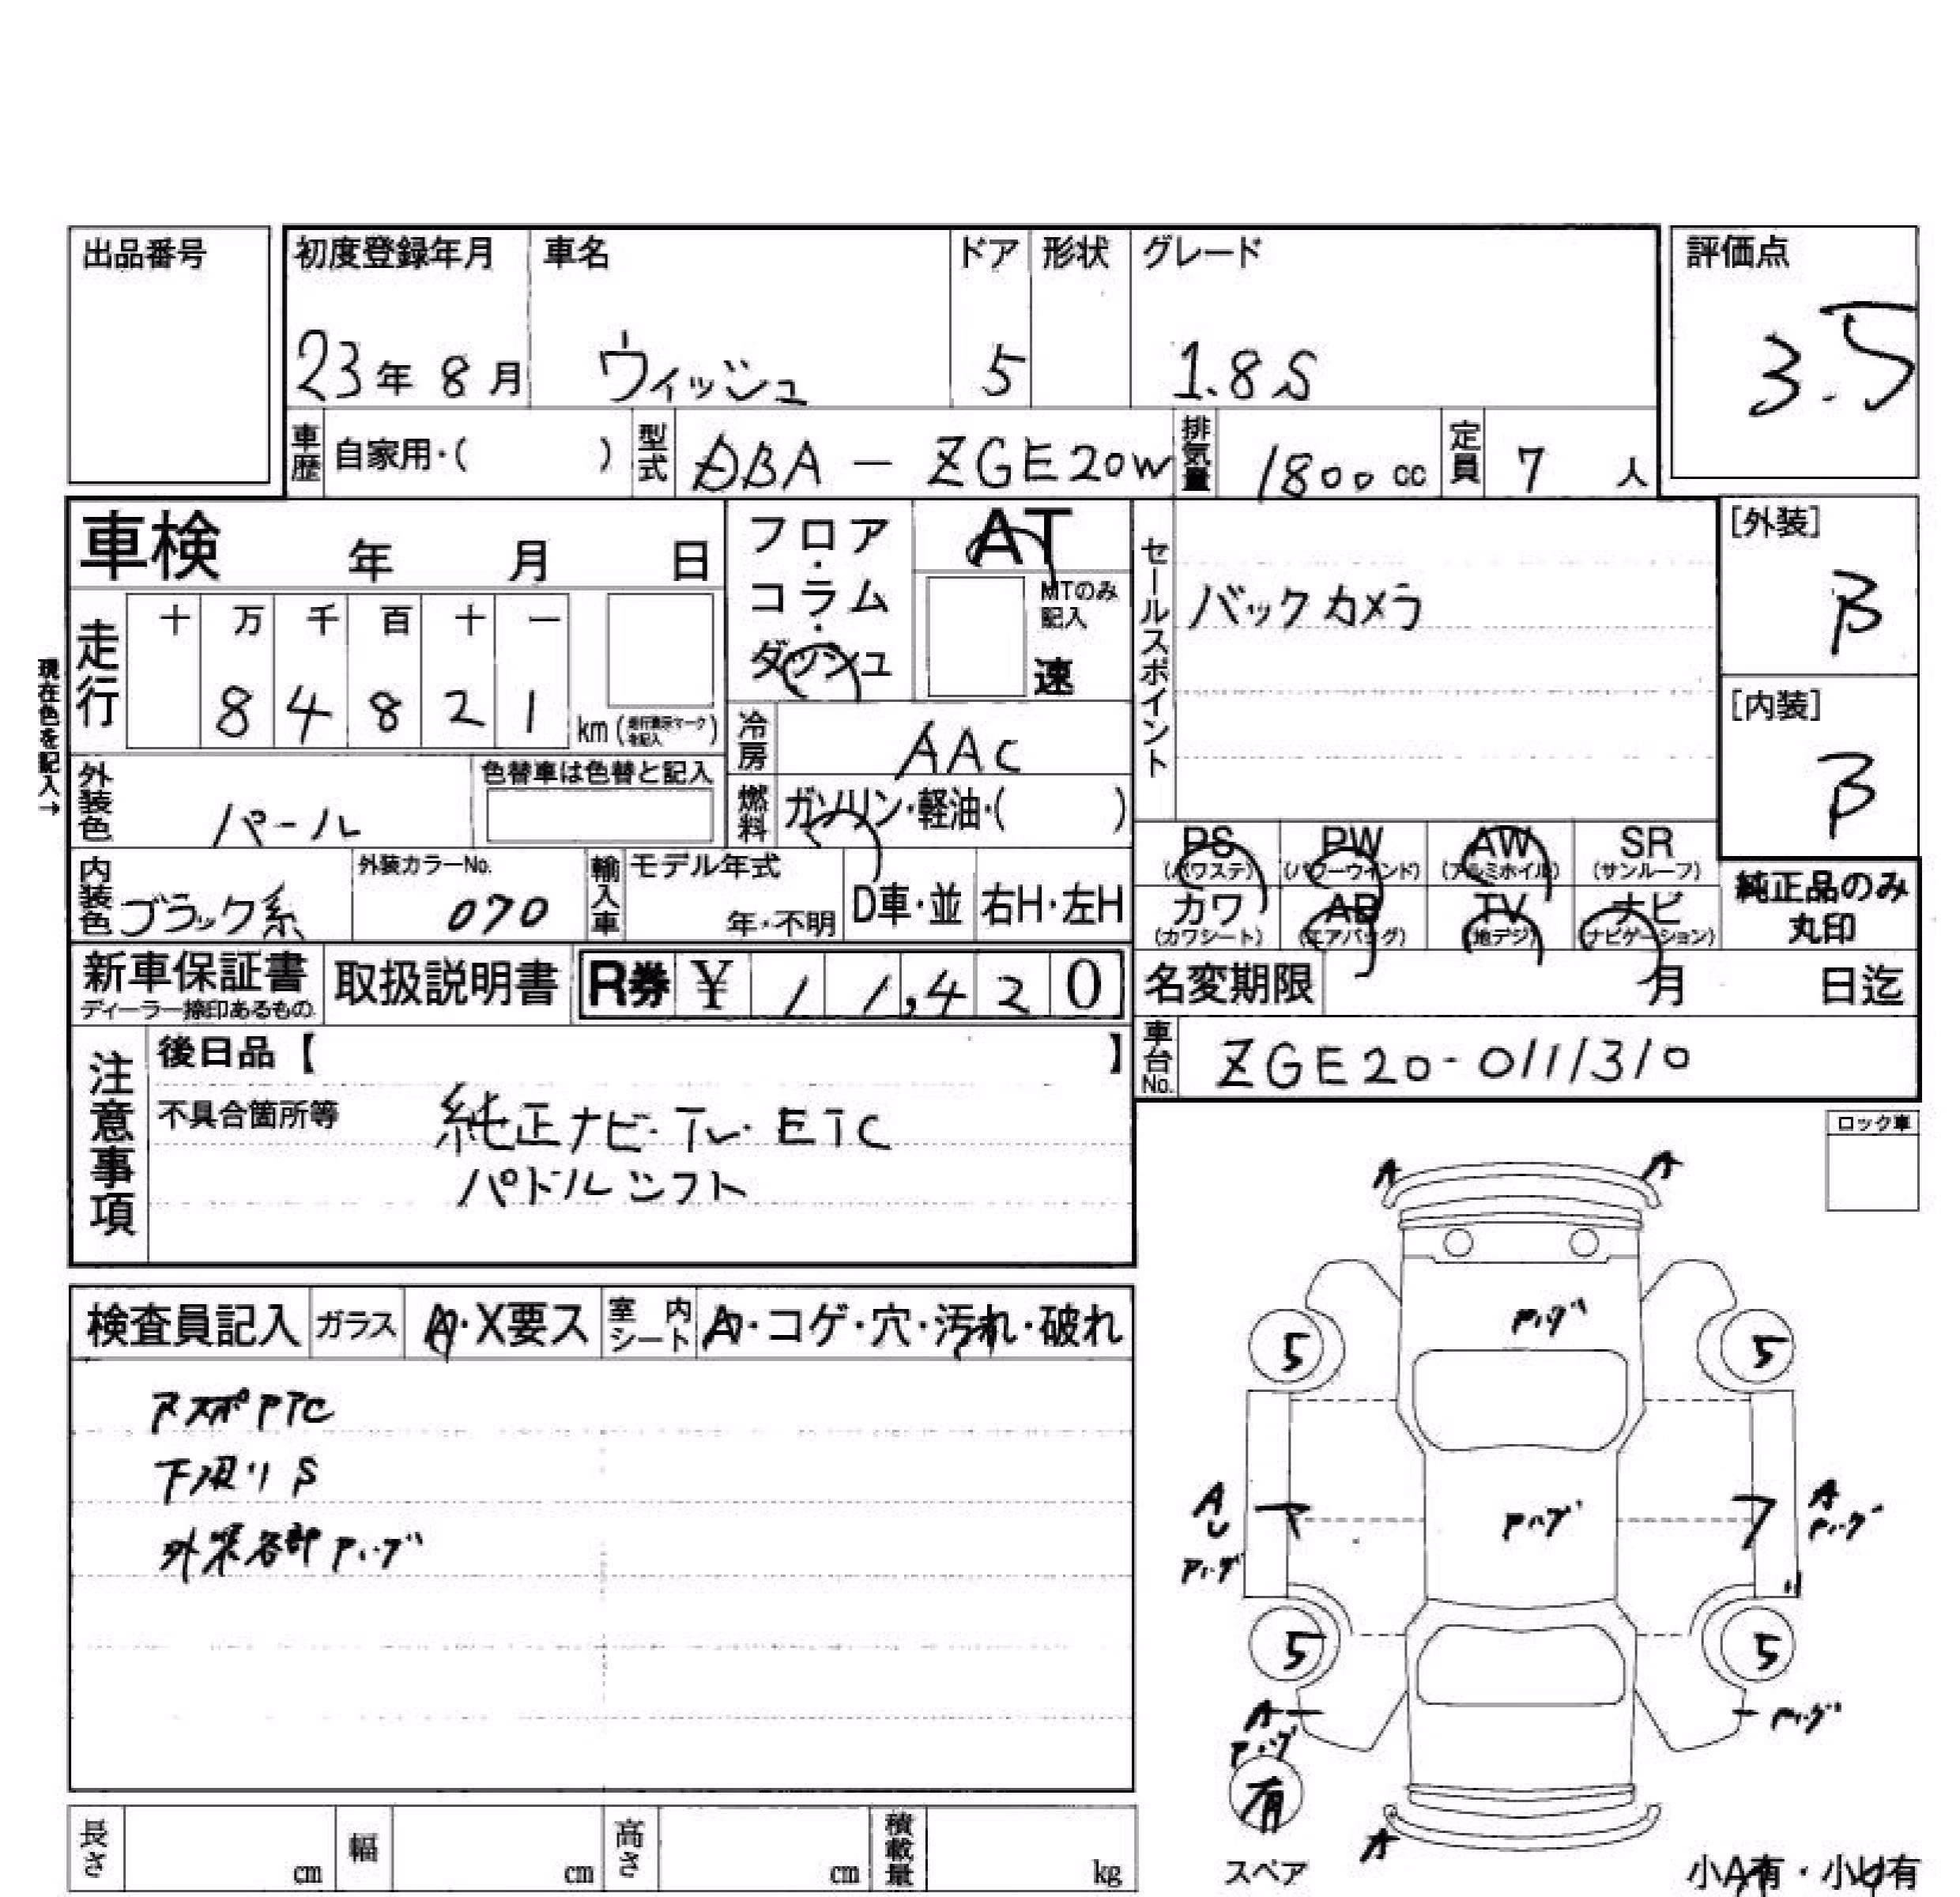 出品番号
初度登録年月 車名 ドア 形状 グレード 評価点
23年 8月 ウィッシュ 5 1.8S 3.5
車歴 自家用・( ) 型式 DBA - ZGE20W 排気量 1800cc 定員 7 人
車検 年 月 日
フロア・コラム・ダッシュ
AT
MTのみ記入
速
セールスポイント
バックカメラ
[外装]
B
[内装]
B
現在色を記入→
走行 十 万 千 百 十 一
8 4 8 2 1 km
冷房 AAC
燃料 ガソリン・軽油・( )
外装色 パール
色替車は色替と記入
内装色 ブラック系
外装カラーNo.
070
輸入車 モデル年式
年・不明 D車・並 右H・左H
PS (パワステ) PW (パワーウインド) AW (アルミホイル) SR (サンルーフ)
カワ (カワシート) AB (エアバッグ) TV (地デジ) ナビ (ナビゲーション)
純正品のみ
丸印
新車保証書
ディーラー捺印あるもの
取扱説明書
R券 ¥ 11,420
名変期限 月 日迄
車台No. ZGE20-0111310
注意事項
後日品【 】
不具合箇所等
純正ナビ・TV・ETC
パドルシフト
ロック車
検査員記入 ガラス A・X要ス 室内シート A・コゲ・穴・汚れ・破れ
下廻りS
外装各部
A A
5 5
A
U
A
5 5
A
有
スペア
A
小A有・小U有
長さ cm 幅 cm 高さ cm 積載量 kg